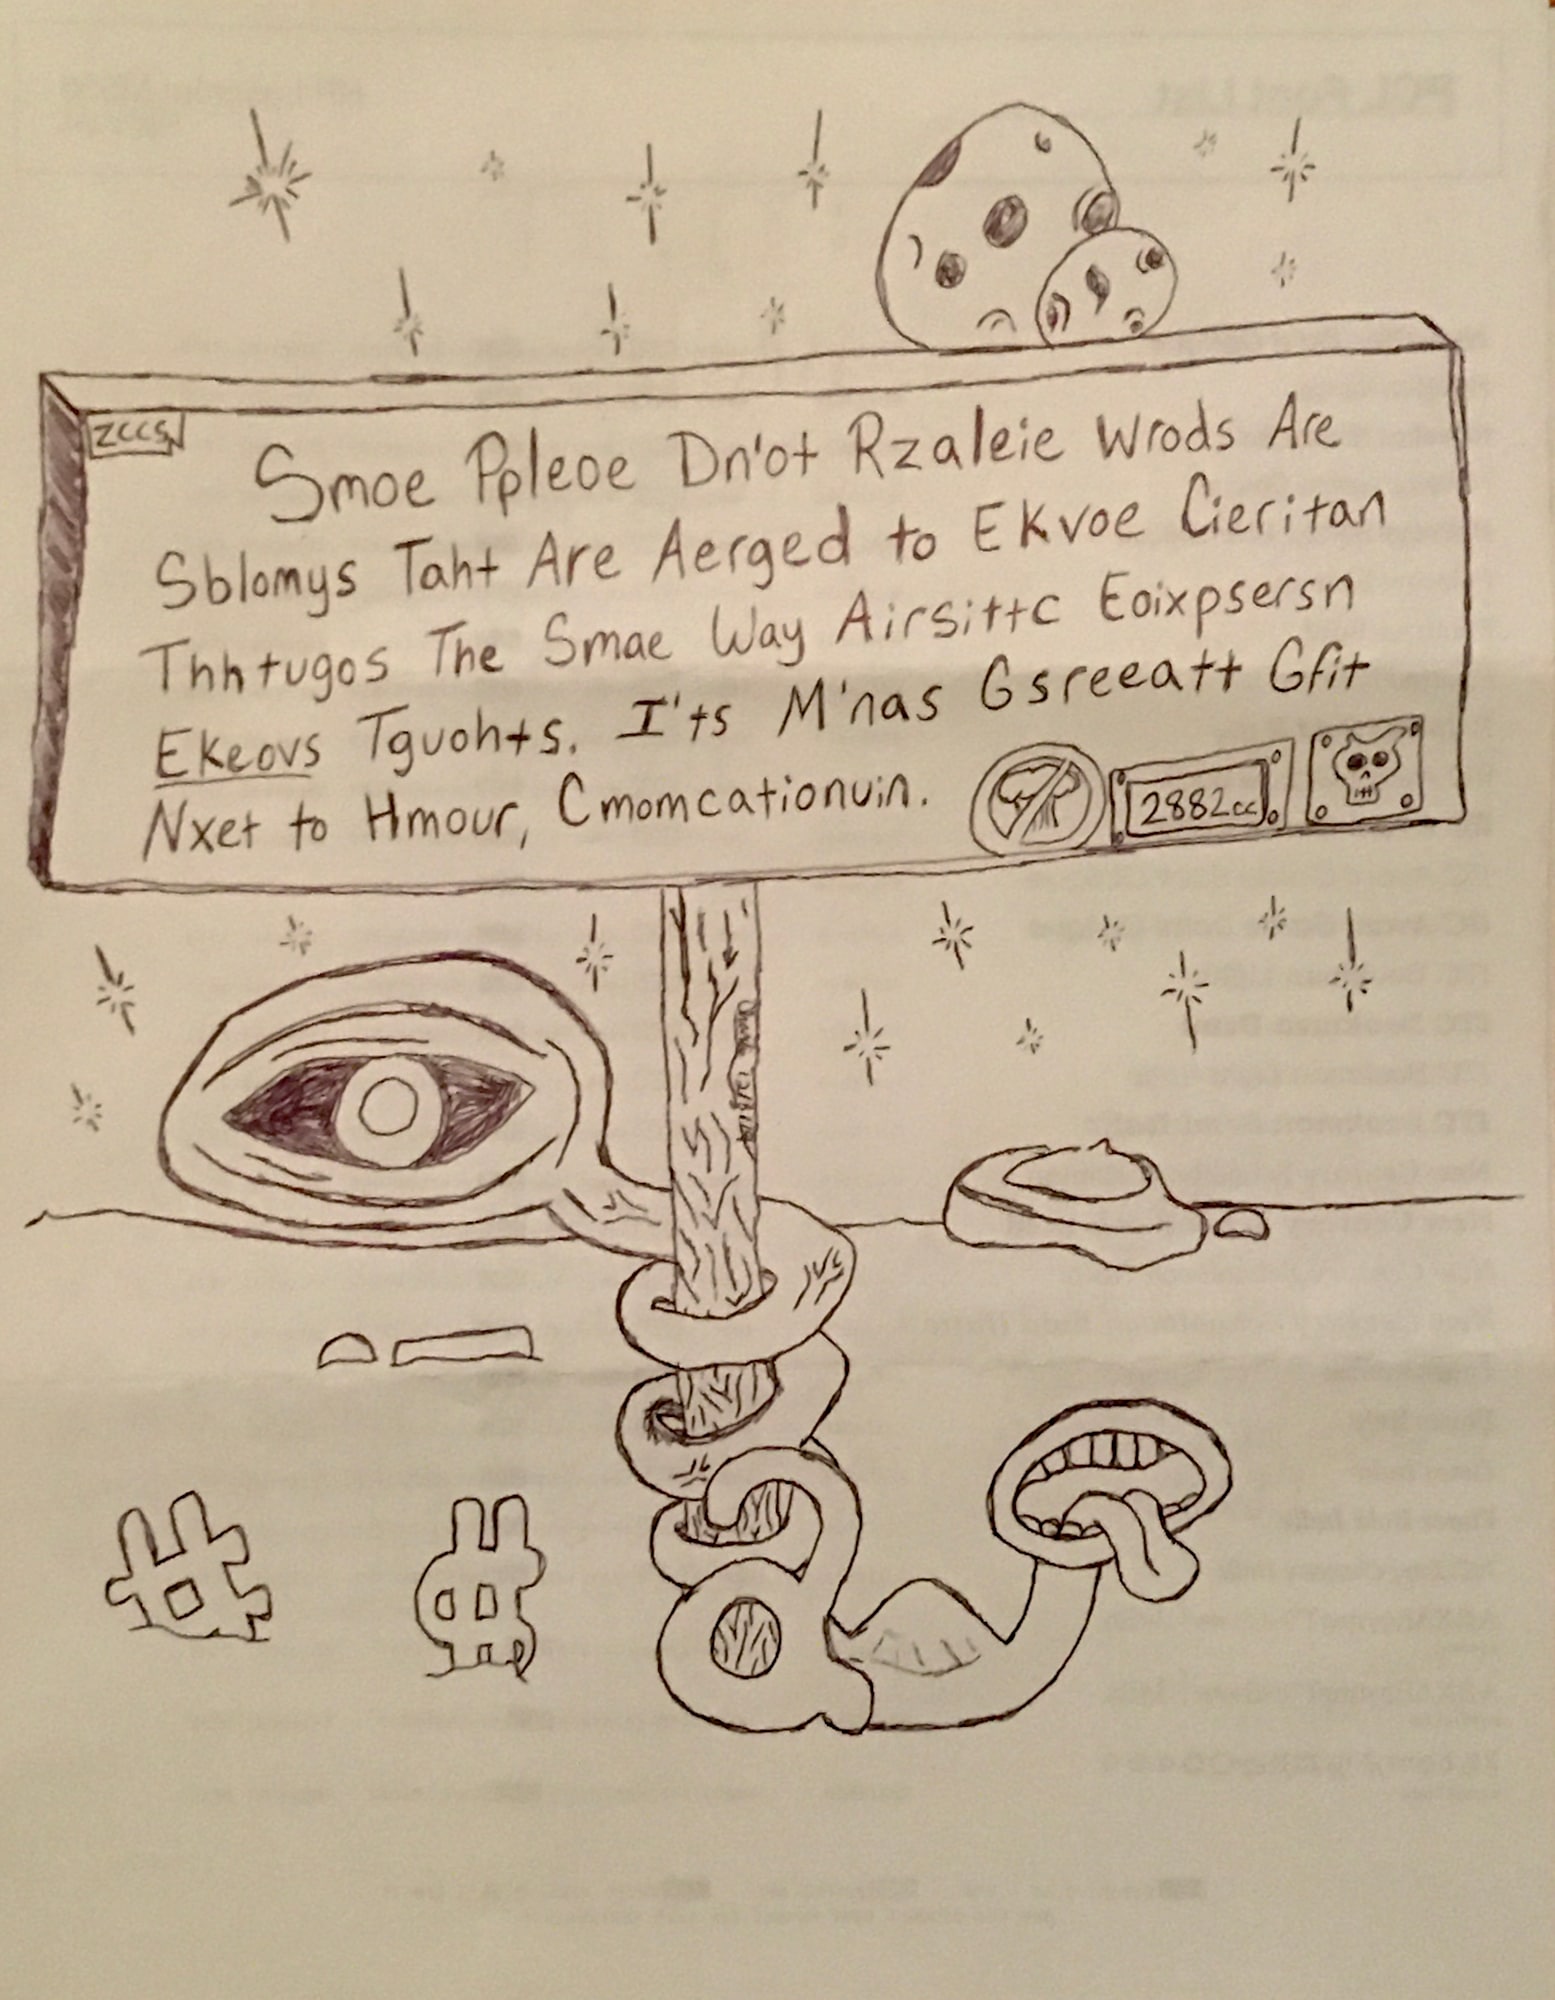 ZCCS
Smoe Ppleoe Dn'ot Rzaleie Wrods Are
Sblomys Taht Are Aerged to Ekvoe Cieritan
Thhtugos The Smae Way Airsittc Eoixpsersn
Ekeovs Tguohts. I'ts M'nas Gsreeatt Gfit
Nxet to Hmour, Cmomcationuin.
2882cc